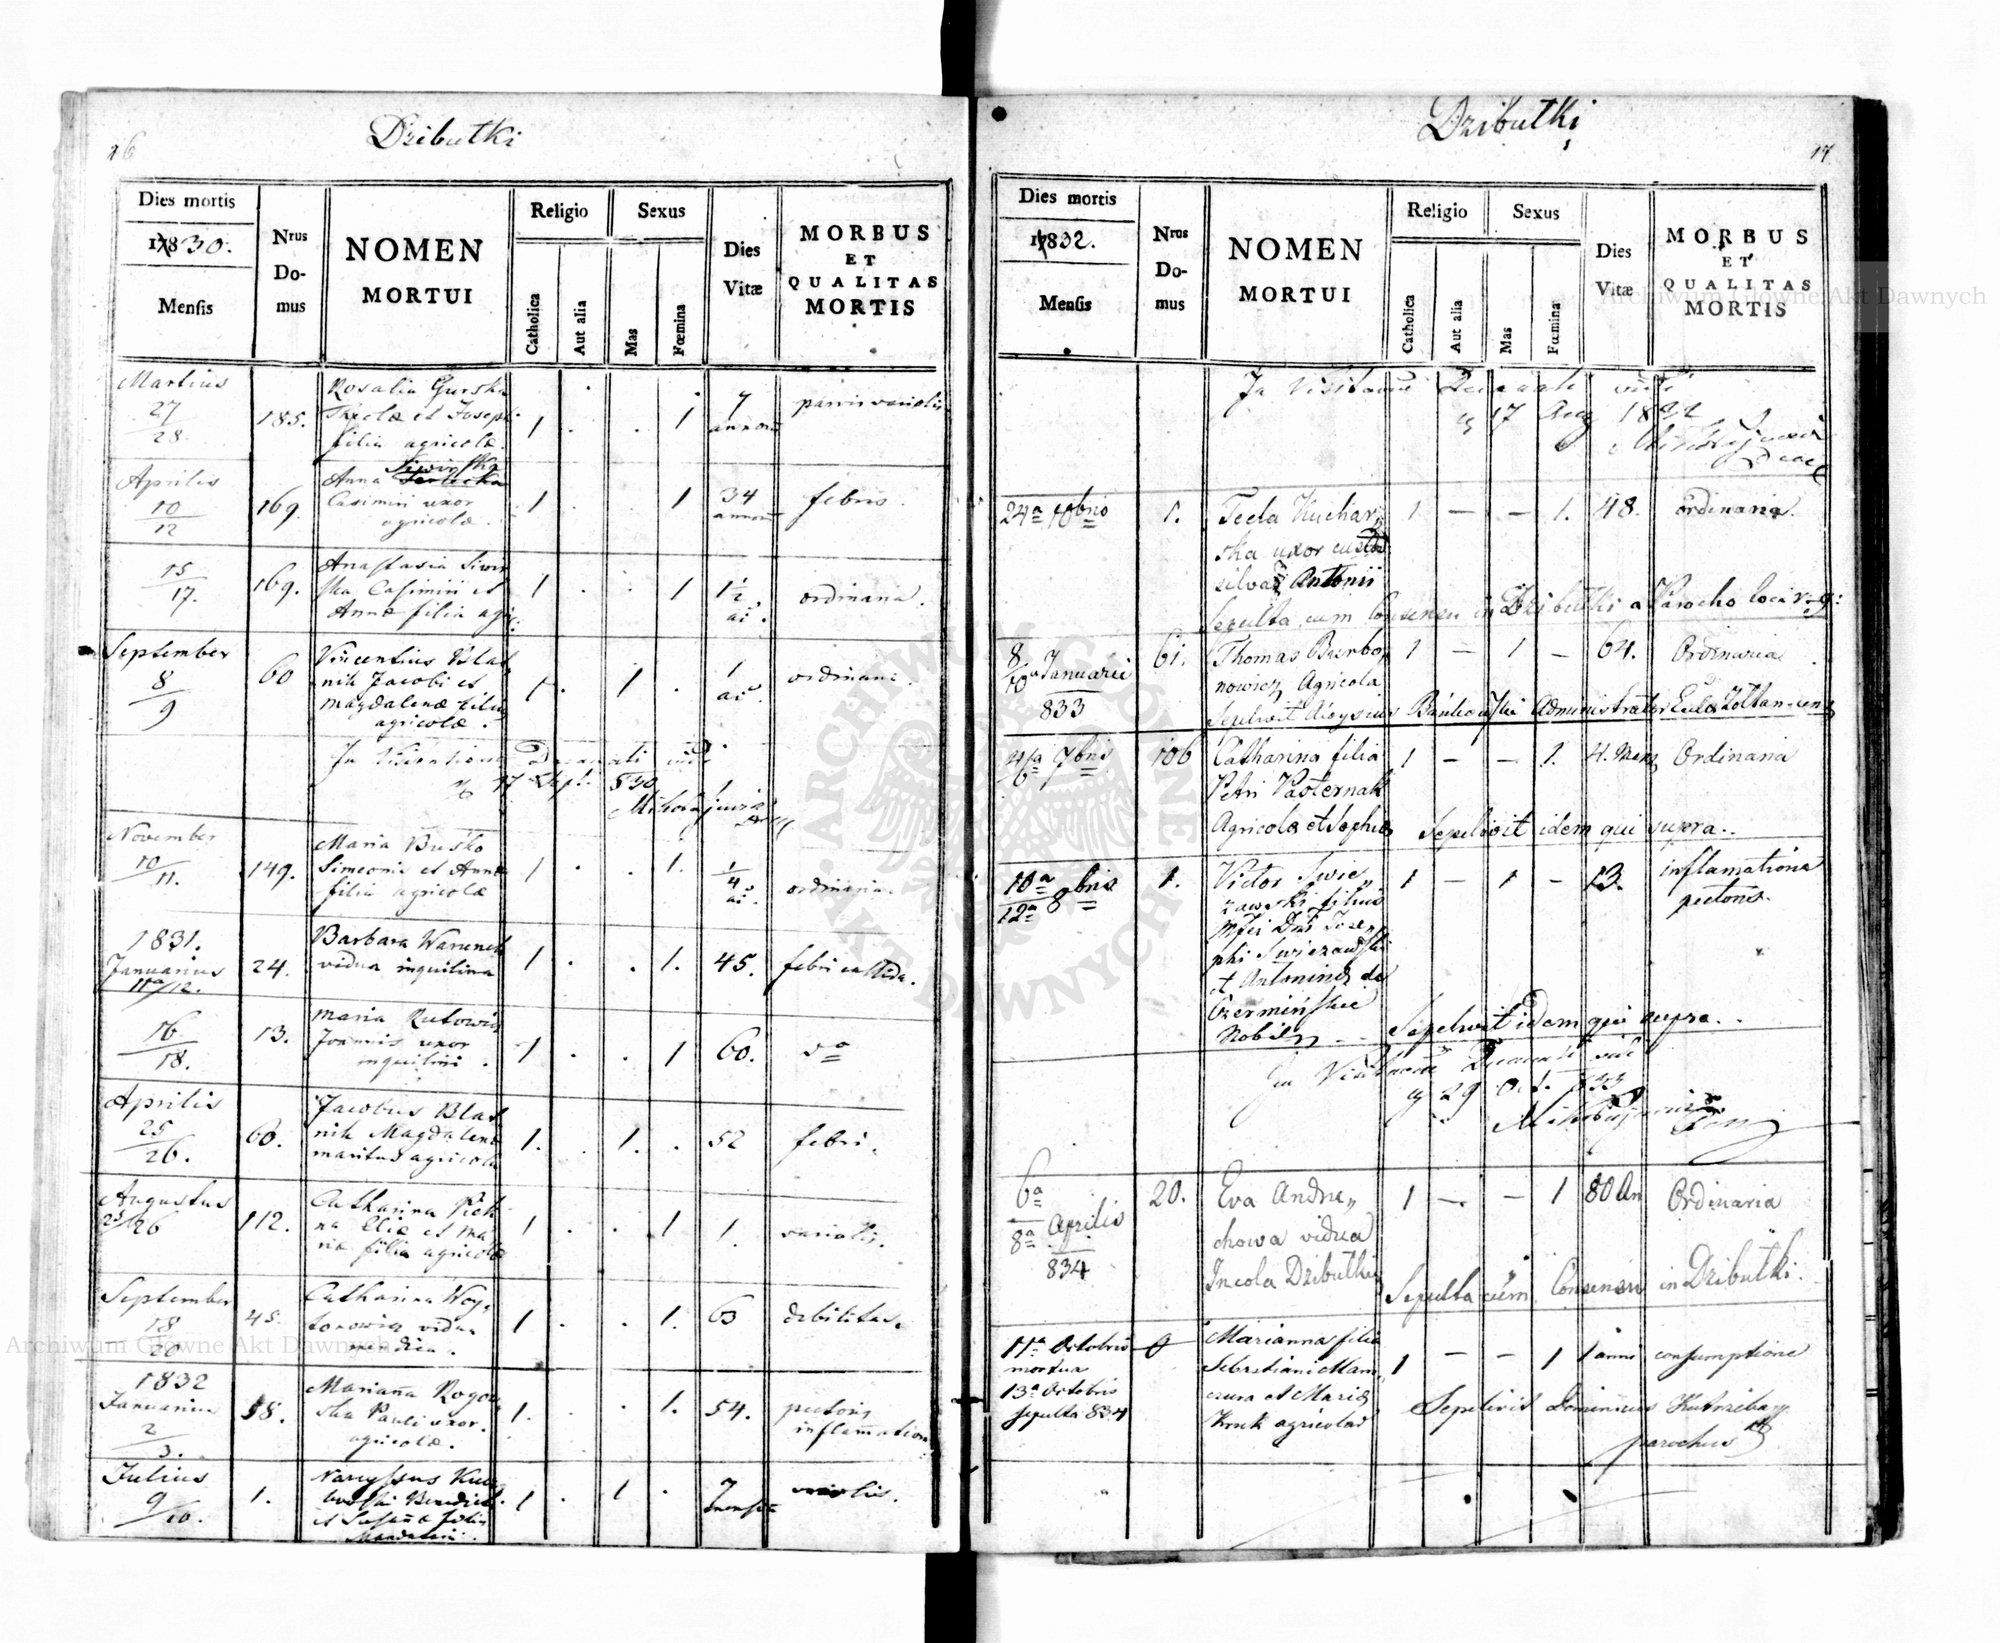 16
Dzibułki
Dies mortis
1830.
Mensis
Nrus
Do-
mus
NOMEN
MORTUI
Religio
Catholica
Aut alia
Sexus
Mas
Fœmina
Dies
Vitæ
MORBUS
ET
QUALITAS
MORTIS
Martius
27
28
185.
Rosalia Gurska
Theclæ et Josephi
filia agricolæ
1 . . 1
7
annorum
parvis variolis
Aprilis
10
12
169.
Anna Siwinska
Casimiri uxor
agricolæ.
1 . . 1
34
annorum
febris.
15
17.
169.
Anastasia Siwin
ska Casimiri et
Annæ filia agric:
1 . . 1
1 1/2
ai.
ordinaria.
September
8
9
60
Vincentius Blat
nik Jacobi et
Magdalenæ filius
agricolæ.
1 . 1 .
1
ai.
ordinaria.
In Visitatione Decanali vidi
17 Sept. 830
November
10
11.
149.
Maria Busko
Simeonis et Annæ
filia agricolæ
1 . . 1.
1/4
ai.
ordinaria.
1831.
Januarius
11a/12.
24.
Barbara Warunek
vidua inquilina
1 . . 1.
45.
febri callida.
16
18.
13.
Maria Rutowicz
Joannis uxor
inquilini.
1 . . 1
60.
Aprilis
25
26.
60.
Jacobus Blat
nik Magdalenæ
maritus agricola
1. . 1. .
52
febri.
Augustus
25/26
112.
Catharina Piet
na Eliæ et Ma
riæ filia agricolæ
1 . . 1
1.
variolis.
September
18
20
45.
Catharina Woy
tonowicz vidua
mendica.
1 . . 1.
63
debilitas.
1832
Januarius
2
3.
58.
Marianna Rogow
ska Pauli uxor.
agricolæ.
1. . . 1.
54.
pectoris
inflamatione
Julius
9
10.
1.
Narcyssus
Benedicti
et Susannæ filius
1 . 1 .
7
mensium
variolis.
17
Dzibułki
Dies mortis
1832.
Mensis
Nros
Do-
mus
NOMEN
MORTUI
Religio
Catholica
Aut alia
Sexus
Mas
Fœmina
Dies
Vitæ
MORBUS
ET
QUALITAS
MORTIS
In Visitatione Decanali vidi
17 Aug 1832
24a 10bris
1.
Tecla Kuchar„
ska uxor custod
silvar Antonii
1 — — 1.
48.
ordinaria.
Sepulta cum Consensu in Dzibułki a Parocho loci r: g:
8
10a Januarii
833
61.
Thomas Burbo„
nowicz Agricola
1 — 1 —
64.
Ordinaria
Sepelivit Aloysius Administrator Żołtan-cens
4a
6a 7bris
106
Catharina filia
Petri Pasternak
Agricolæ et Sophiæ
1 — — 1.
4. Mens
Ordinaria
Sepelivit idem qui supra..
10a
12a 8bris
1.
Victor Swie„
zawski filius
Mfci Dni Jose„
phi Swiezawski
et Antoninæ de
Czermińskie
Nobil
1 — 1 —
13.
inflamatione
pectoris.
Sepelivit idem qui supra..
In Visitatione Decanali vidi
29 Oct. 833
6a
8a Aprilis
834
20.
Eva Andru„
chowa vidua
Incola Dzibułki
1 — — 1
80 An
Ordinaria
Sepulta cum Consensu in Dzibułki.
11a Octobris
mortua
13a Octobris
sepulta 834
0
Marianna filia
Sebastiani Mam„
czura et Mariæ
Kruk agricolar
1 — — 1
1 anni
consumptione
Sepelivit Dominicus Kutrzeba
parochus
Archiwum Główne Akt Dawnych
Archiwum Główne Akt Dawnych
ARCHIWUM GŁÓWNE
AKT DAWNYCH